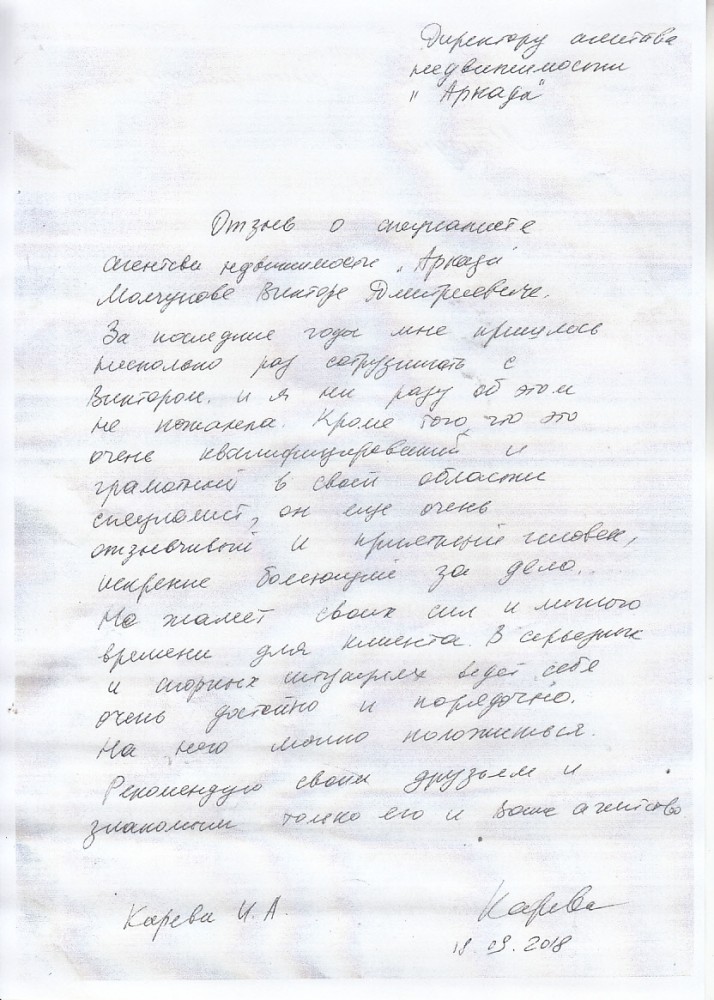 Директору агентства
недвижимости
"Аркада"
Отзыв о специалисте
агентства недвижимости "Аркада"
Молчунове Викторе Дмитриевиче.
За последние годы мне пришлось
несколько раз сотрудничать с
Виктором. и я ни разу об этом
не пожалела. Кроме того, что это
очень квалифицированный и
грамотный в своей области
специалист, он еще очень
отзывчивый и приятный человек,
искренне болеющий за дело.
Не жалеет своих сил и личного
времени для клиента. В серьезных
и спорных ситуациях ведет себя
очень достойно и порядочно.
На него можно положиться.
Рекомендую своим друзьям и
знакомым только его и Ваше агентство
Карева И.А.
Карева
18.09.2018